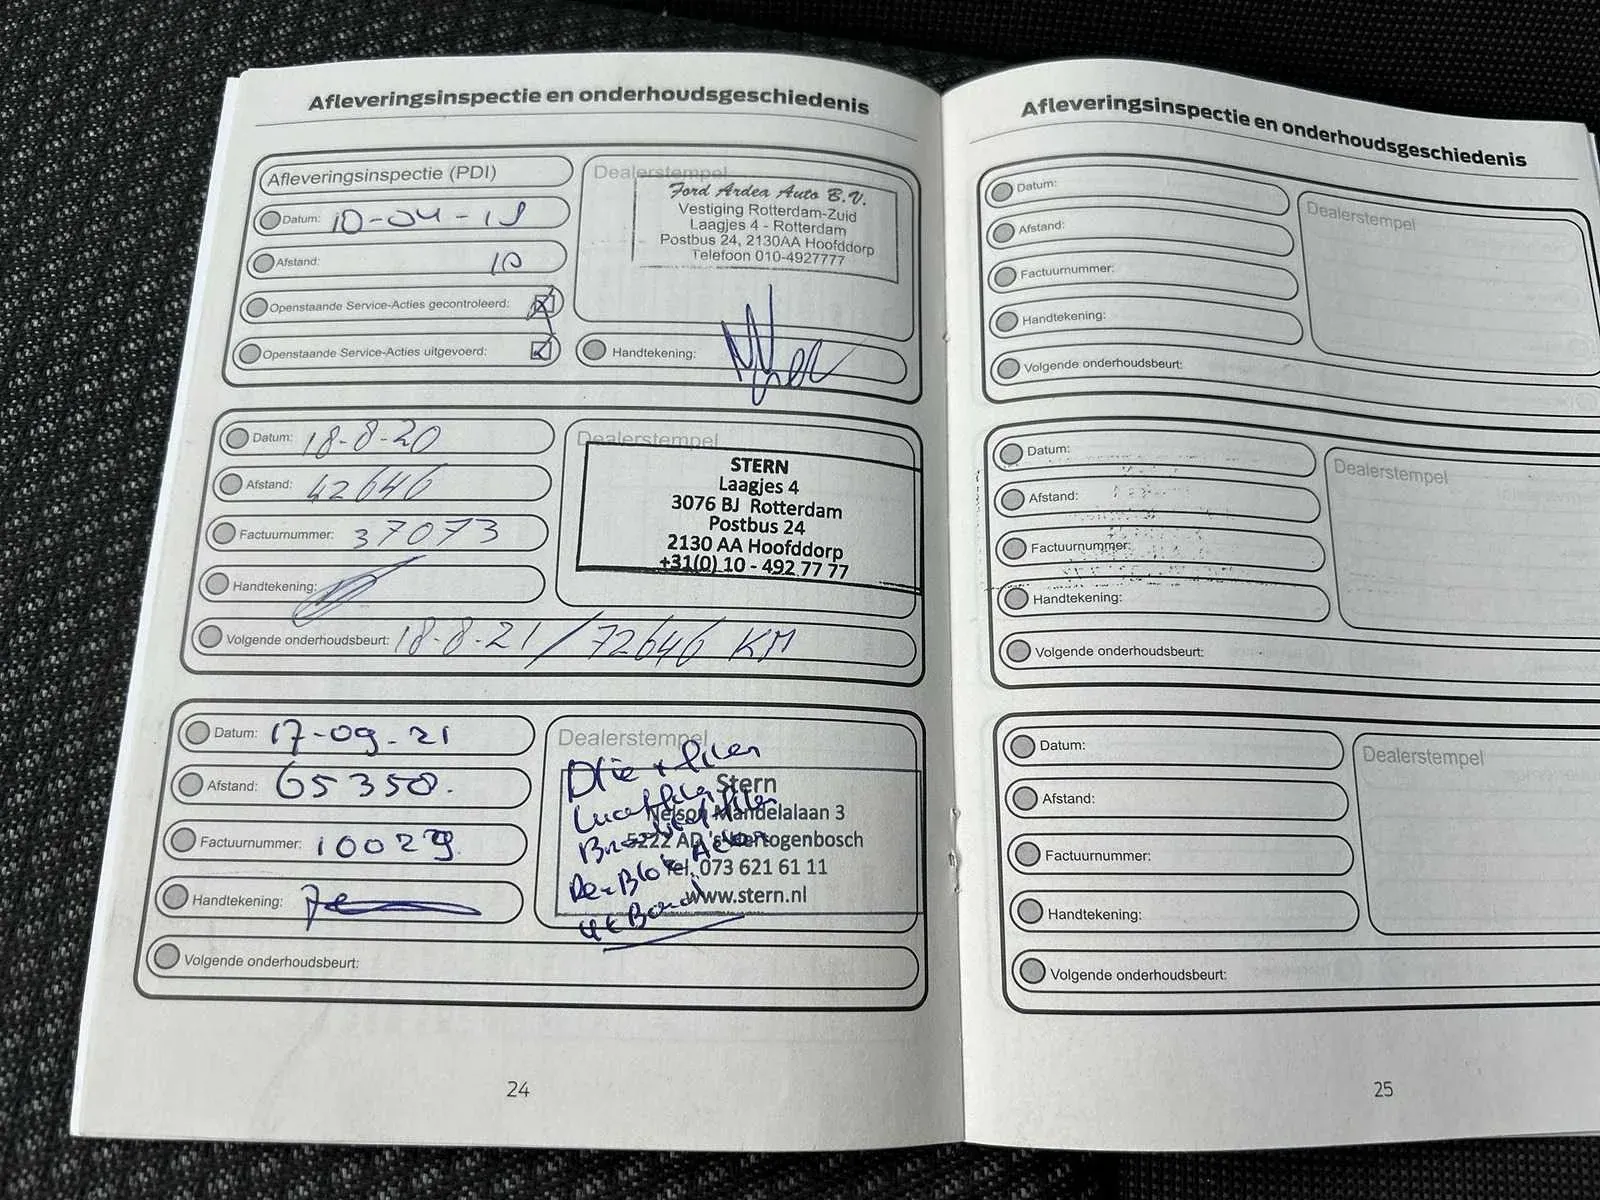 Afleveringsinspectie en onderhoudsgeschiedenis
Afleveringsinspectie (PDI)
Datum: 10-04-19
Afstand: 10
Openstaande Service-Acties gecontroleerd:
Openstaande Service-Acties uitgevoerd:
Dealerstempel
Ford Ardea Auto B.V.
Vestiging Rotterdam-Zuid
Laagjes 4 - Rotterdam
Postbus 24, 2130AA Hoofddorp
Telefoon 010-4927777
Handtekening:
Datum: 18-8-20
Afstand: 42646
Factuurnummer: 37073
Handtekening:
Dealerstempel
STERN
Laagjes 4
3076 BJ Rotterdam
Postbus 24
2130 AA Hoofddorp
+31(0) 10 - 492 77 77
Volgende onderhoudsbeurt: 18-8-21 / 72646 KM
Datum: 17-09-21
Afstand: 65350.
Factuurnummer: 10029
Handtekening:
Dealerstempel
Olie + filter
Luchtfilter
Stern
Nelson Mandelalaan 3
5222 AD 's-Hertogenbosch
Tel. 073 621 61 11
www.stern.nl
Volgende onderhoudsbeurt:
24
Afleveringsinspectie en onderhoudsgeschiedenis
Datum:
Afstand:
Factuurnummer:
Handtekening:
Volgende onderhoudsbeurt:
Dealerstempel
Datum:
Afstand:
Factuurnummer:
Handtekening:
Volgende onderhoudsbeurt:
Dealerstempel
Datum:
Afstand:
Factuurnummer:
Handtekening:
Volgende onderhoudsbeurt:
Dealerstempel
25